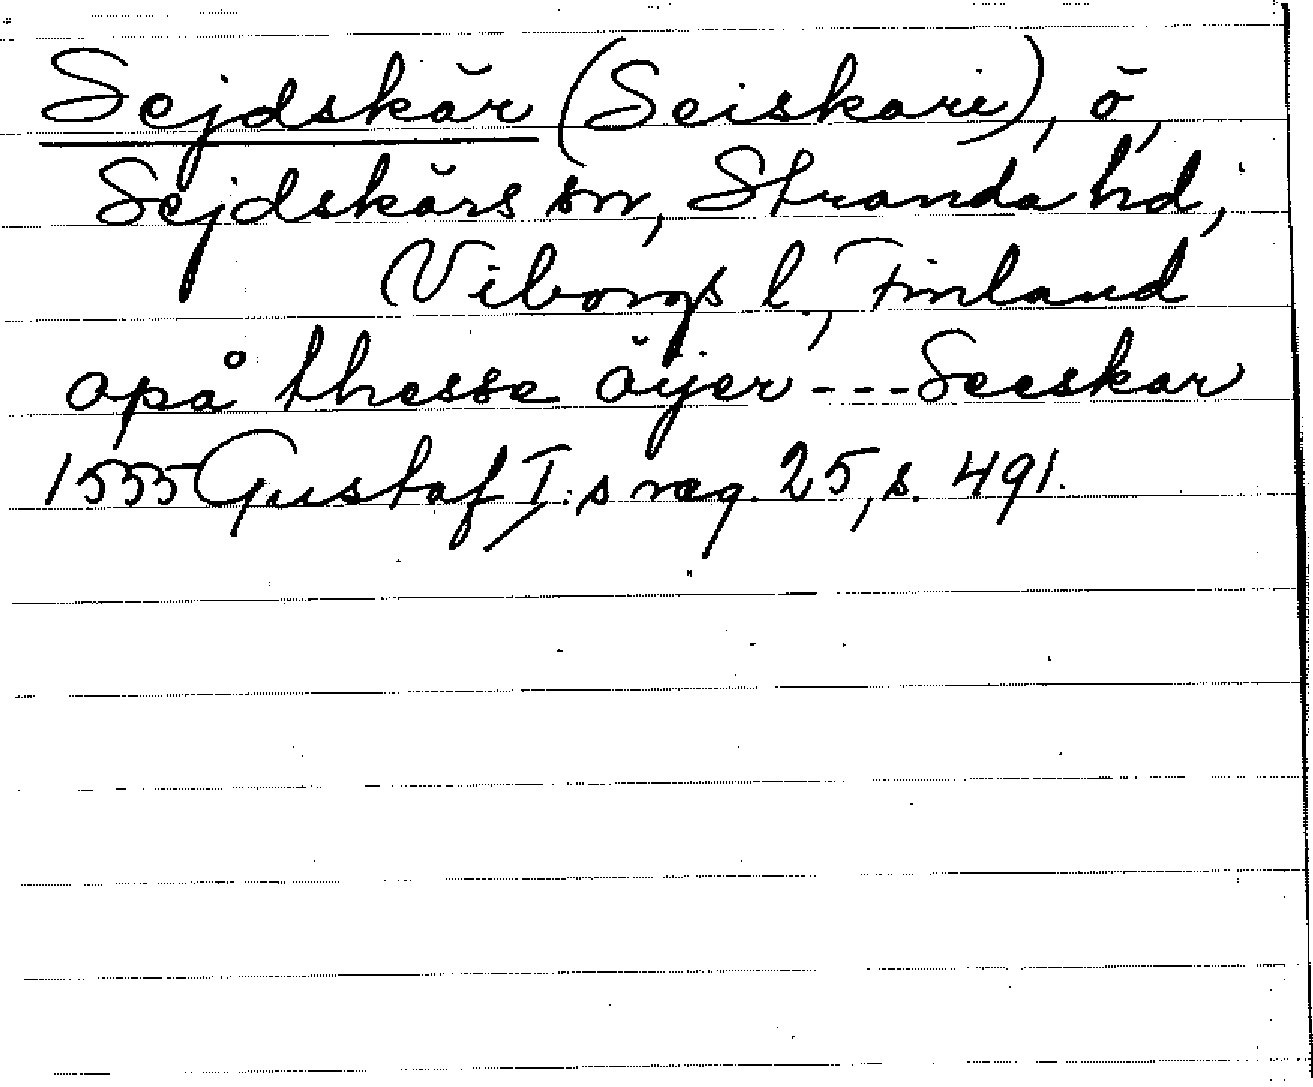 Sejdskär (Seiskari), ö,
Sejdskärs sn, Stranda hd,
Viborgs l., Finland
opå thesse öijer --- Seeskar
1555 Gustaf I:s reg. 25, s. 491.